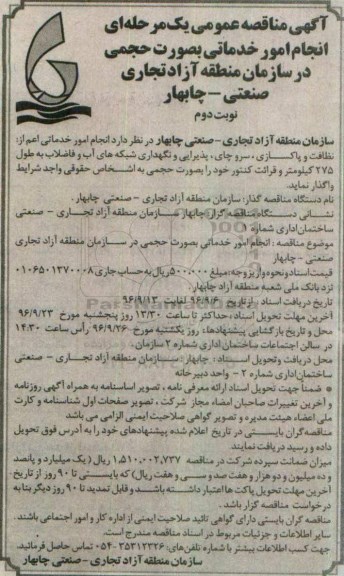 آگهی مناقصه عمومی یک مرحله‌ای
انجام امور خدماتی بصورت حجمی
در سازمان منطقه آزاد تجاری
صنعتی - چابهار
نوبت دوم
سازمان منطقه آزاد تجاری - صنعتی چابهار در نظر دارد انجام امور خدماتی اعم از:
نظافت و پاکسازی، سرو چای، پذیرایی و نگهداری شبکه های آب و فاضلاب به طول
۲۷۵ کیلومتر و قرائت کنتور خود را بصورت حجمی به اشخاص حقوقی واجد شرایط
واگذار نماید.
نام دستگاه مناقصه گذار: سازمان منطقه آزاد تجاری - صنعتی چابهار.
نشانی دستگاه مناقصه گزار: چابهار سازمان منطقه آزاد تجاری - صنعتی
ساختمان اداری شماره
موضوع مناقصه: انجام امور خدماتی بصورت حجمی در سازمان منطقه آزاد تجاری
صنعتی - چابهار
قیمت اسناد و نحوه واریز وجه: مبلغ ۵۰۰،۰۰۰ ریال به حساب جاری ۰۱۰۶۵۰۱۳۷۰۰۰۸
نزد بانک ملی شعبه منطقه آزاد چابهار.
تاریخ دریافت اسناد: از تاریخ ۹۶/۹/۶ لغایت ۹۶/۹/۱۲
آخرین مهلت تحویل اسناد: حداکثر تا ساعت ۱۳/۳۰ روز پنجشنبه مورخ ۹۶/۹/۲۳
محل و تاریخ بازگشایی پیشنهادها: روز یکشنبه مورخ ۹۶/۹/۲۶ رأس ساعت ۱۴:۳۰
در سالن اجتماعات ساختمان اداری شماره ۲ سازمان.
محل دریافت وتحویل اسناد: چابهار سازمان منطقه آزاد تجاری - صنعتی
ساختمان اداری شماره ۲ - واحد دبیرخانه
ضمناً جهت تحویل اسناد ارائه معرفی نامه، تصویر اساسنامه به همراه آگهی روزنامه
و آخرین تغییرات صاحبان امضاء مجاز شرکت، تصویر صفحات اول شناسنامه و کارت
ملی اعضاء هیئت مدیره و تصویر گواهی صلاحیت ایمنی الزامی می باشد
مناقصه گران بایستی در تاریخ اعلام شده پیشنهادهای خود را به آدرس فوق تحویل
داده و رسید دریافت نمایند.
میزان ضمانت سپرده شرکت در مناقصه ۱،۵۱۰،۰۰۲،۷۳۷ ریال (یک میلیارد و پانصد
و ده میلیون و دو هزار و هفت صد و سی و هفت ریال) که بایستی تا ۹۰ روز از تاریخ
آخرین مهلت تحویل پاکت ها اعتبار داشته باشد و قابل تمدید تا ۹۰ روز دیگر بنا به
درخواست مناقصه گزار باشد.
مناقصه گران بایستی دارای گواهی تائید صلاحیت ایمنی از اداره کار و امور اجتماعی باشند.
سایر اطلاعات و جزئیات مربوط در اسناد مناقصه مندرج است.
جهت کسب اطلاعات بیشتر با شماره تلفن‌های: ۳۵۳۱۲۳۲۶-۰۵۴ تماس حاصل فرمائید.
سازمان منطقه آزاد تجاری - صنعتی چابهار